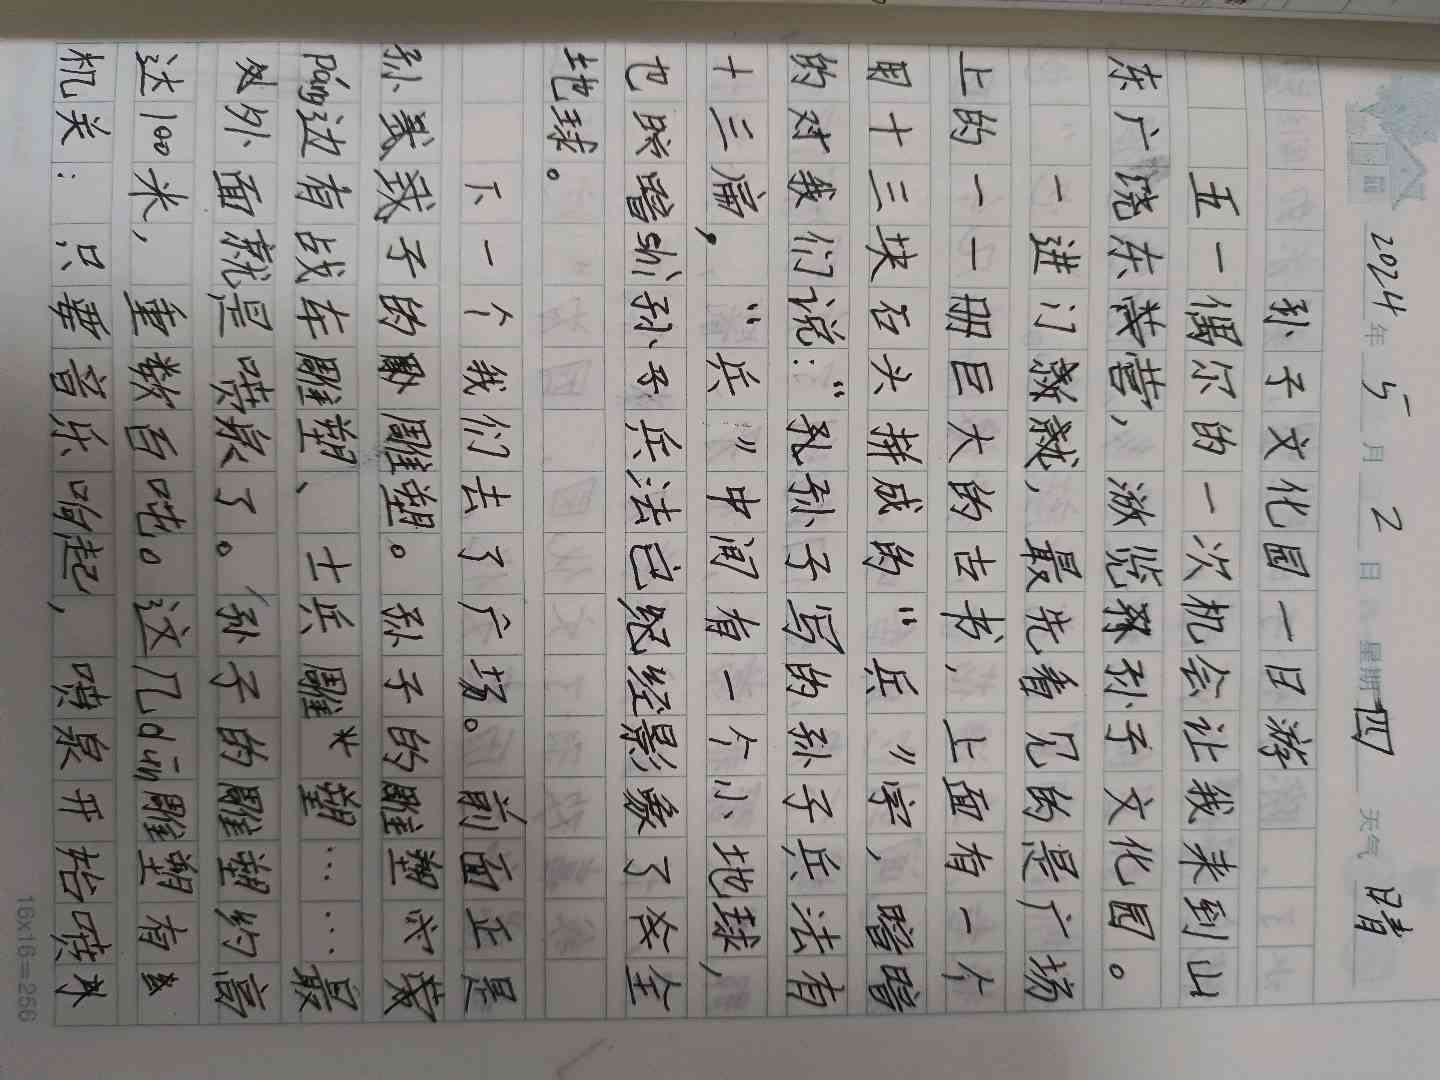 2024年5月2日 星期四 天气晴
孙子文化园一日游
五一偶尔的一次机会让我来到山
东广饶东营，游览孙子文化园。
一进门感感，最先看见的是广场
上的一一册巨大的古书，上面有一个
用十三块石头拼成的“兵”字，
的对我们说：“孔孙子写的孙子兵法有
十三篇，“兵”中间有一个小地球，
也 shì孙子兵法已经经影象了全
地球。
下一个我们去了广场。前面正是
孙武子的雕塑。孙子的雕塑
páng边有战车雕塑、士兵雕塑……最
外面就是喷泉了。孙子的雕塑约高
达100米，重数百吨。这几dūn雕塑有
机关：只要音乐响起，喷泉开始喷水
16x16=256